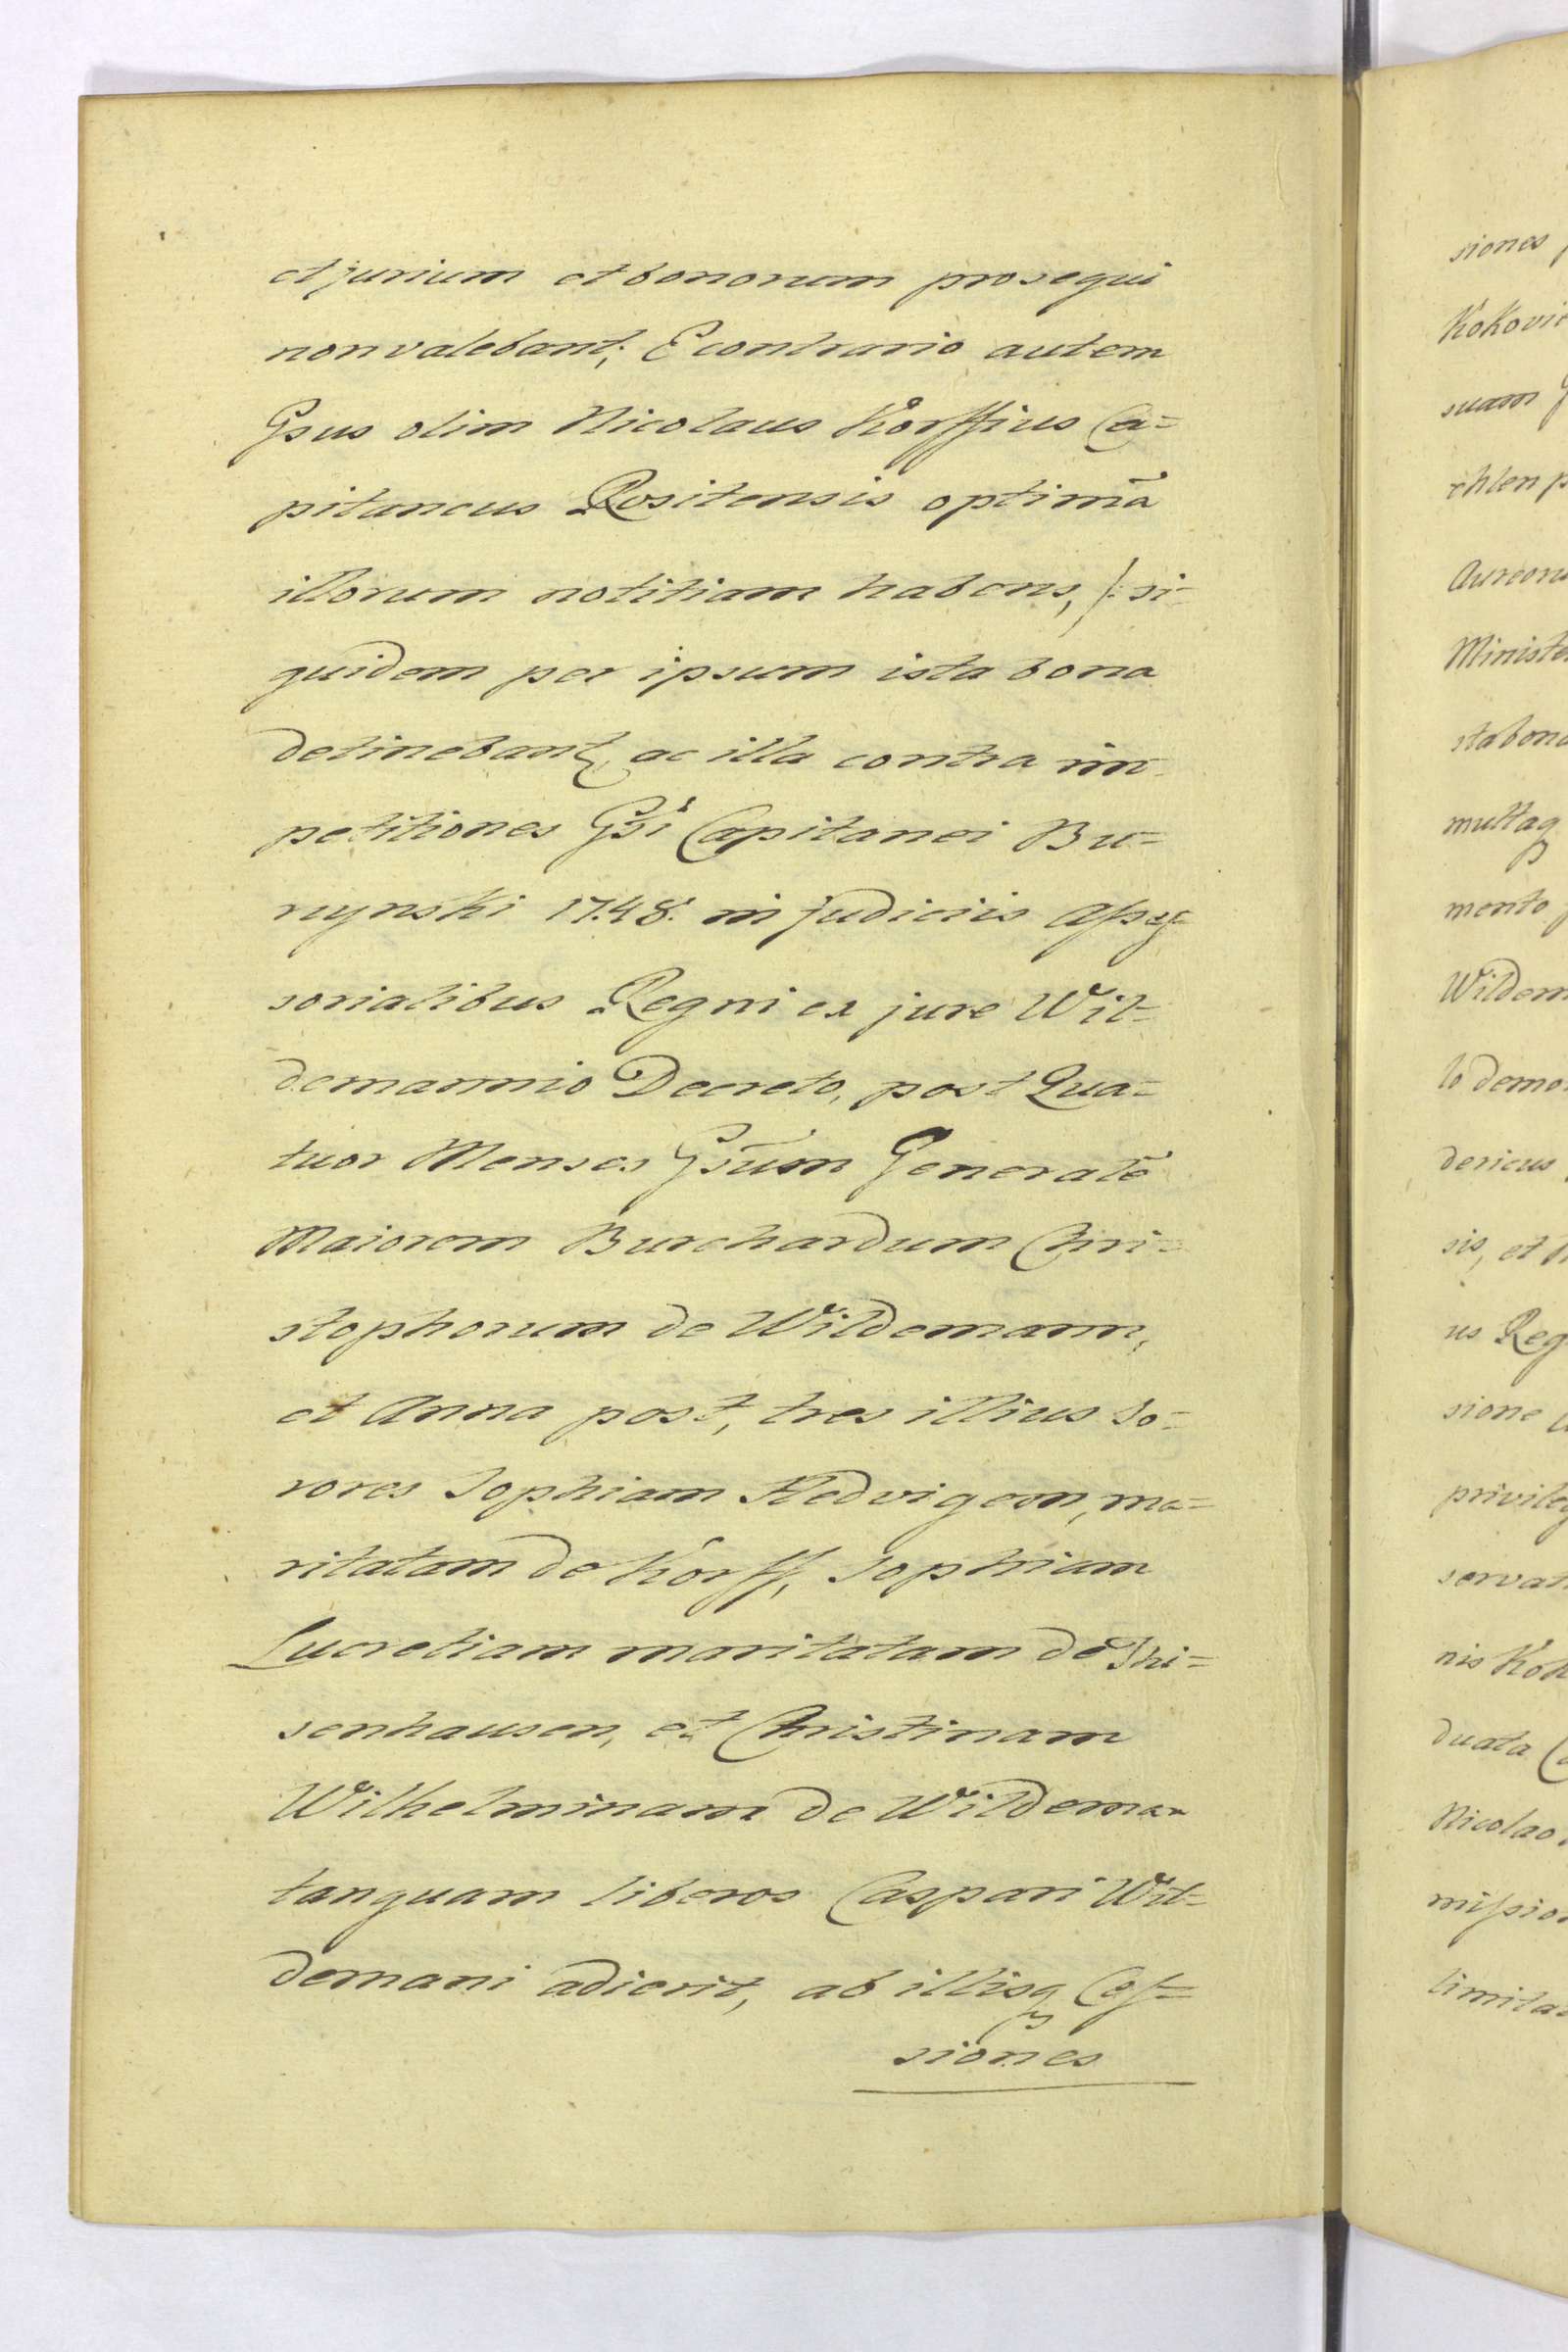 et jurium et bonorum prosequi
non valebant; E contrario autem
Gsus olim Nicolaus Korffius Ca=
pitaneus Rositensis optimã
illorum notitiam habens, /: si=
quidem per ipsum ista bona
detinebant, ac illa contra im=
petitiones Gsi Capitanei Bu=
rzynski 1748. in judiciis Asses=
sorialibus Regni ex jure Wil=
demannio Decreto, post Qua=
tuor Menses Gsum Generalẽ
Maiorem Burchardum Chri=
stophorum de Wildemann,
et Anna post, tres illius So=
rores Sophiam Hedvigem, ma=
ritatam de Korff, Sophiam
Lucretiam maritatam de Thi=
senhausen, et Christinam
Wilhelminam de Wildeman
tanquam liberos Caspari Wil=
demani adierit, ab illisq Ces=
siones
siones
Kokovi
suam
chlen
Aureoru
Ministe
sta bona
multaq
mento
Wildem
lo demo
dericus
sis, et
us Reg
sione
privileg
servat
nis Kok
duata
Nicolao
missio
limita